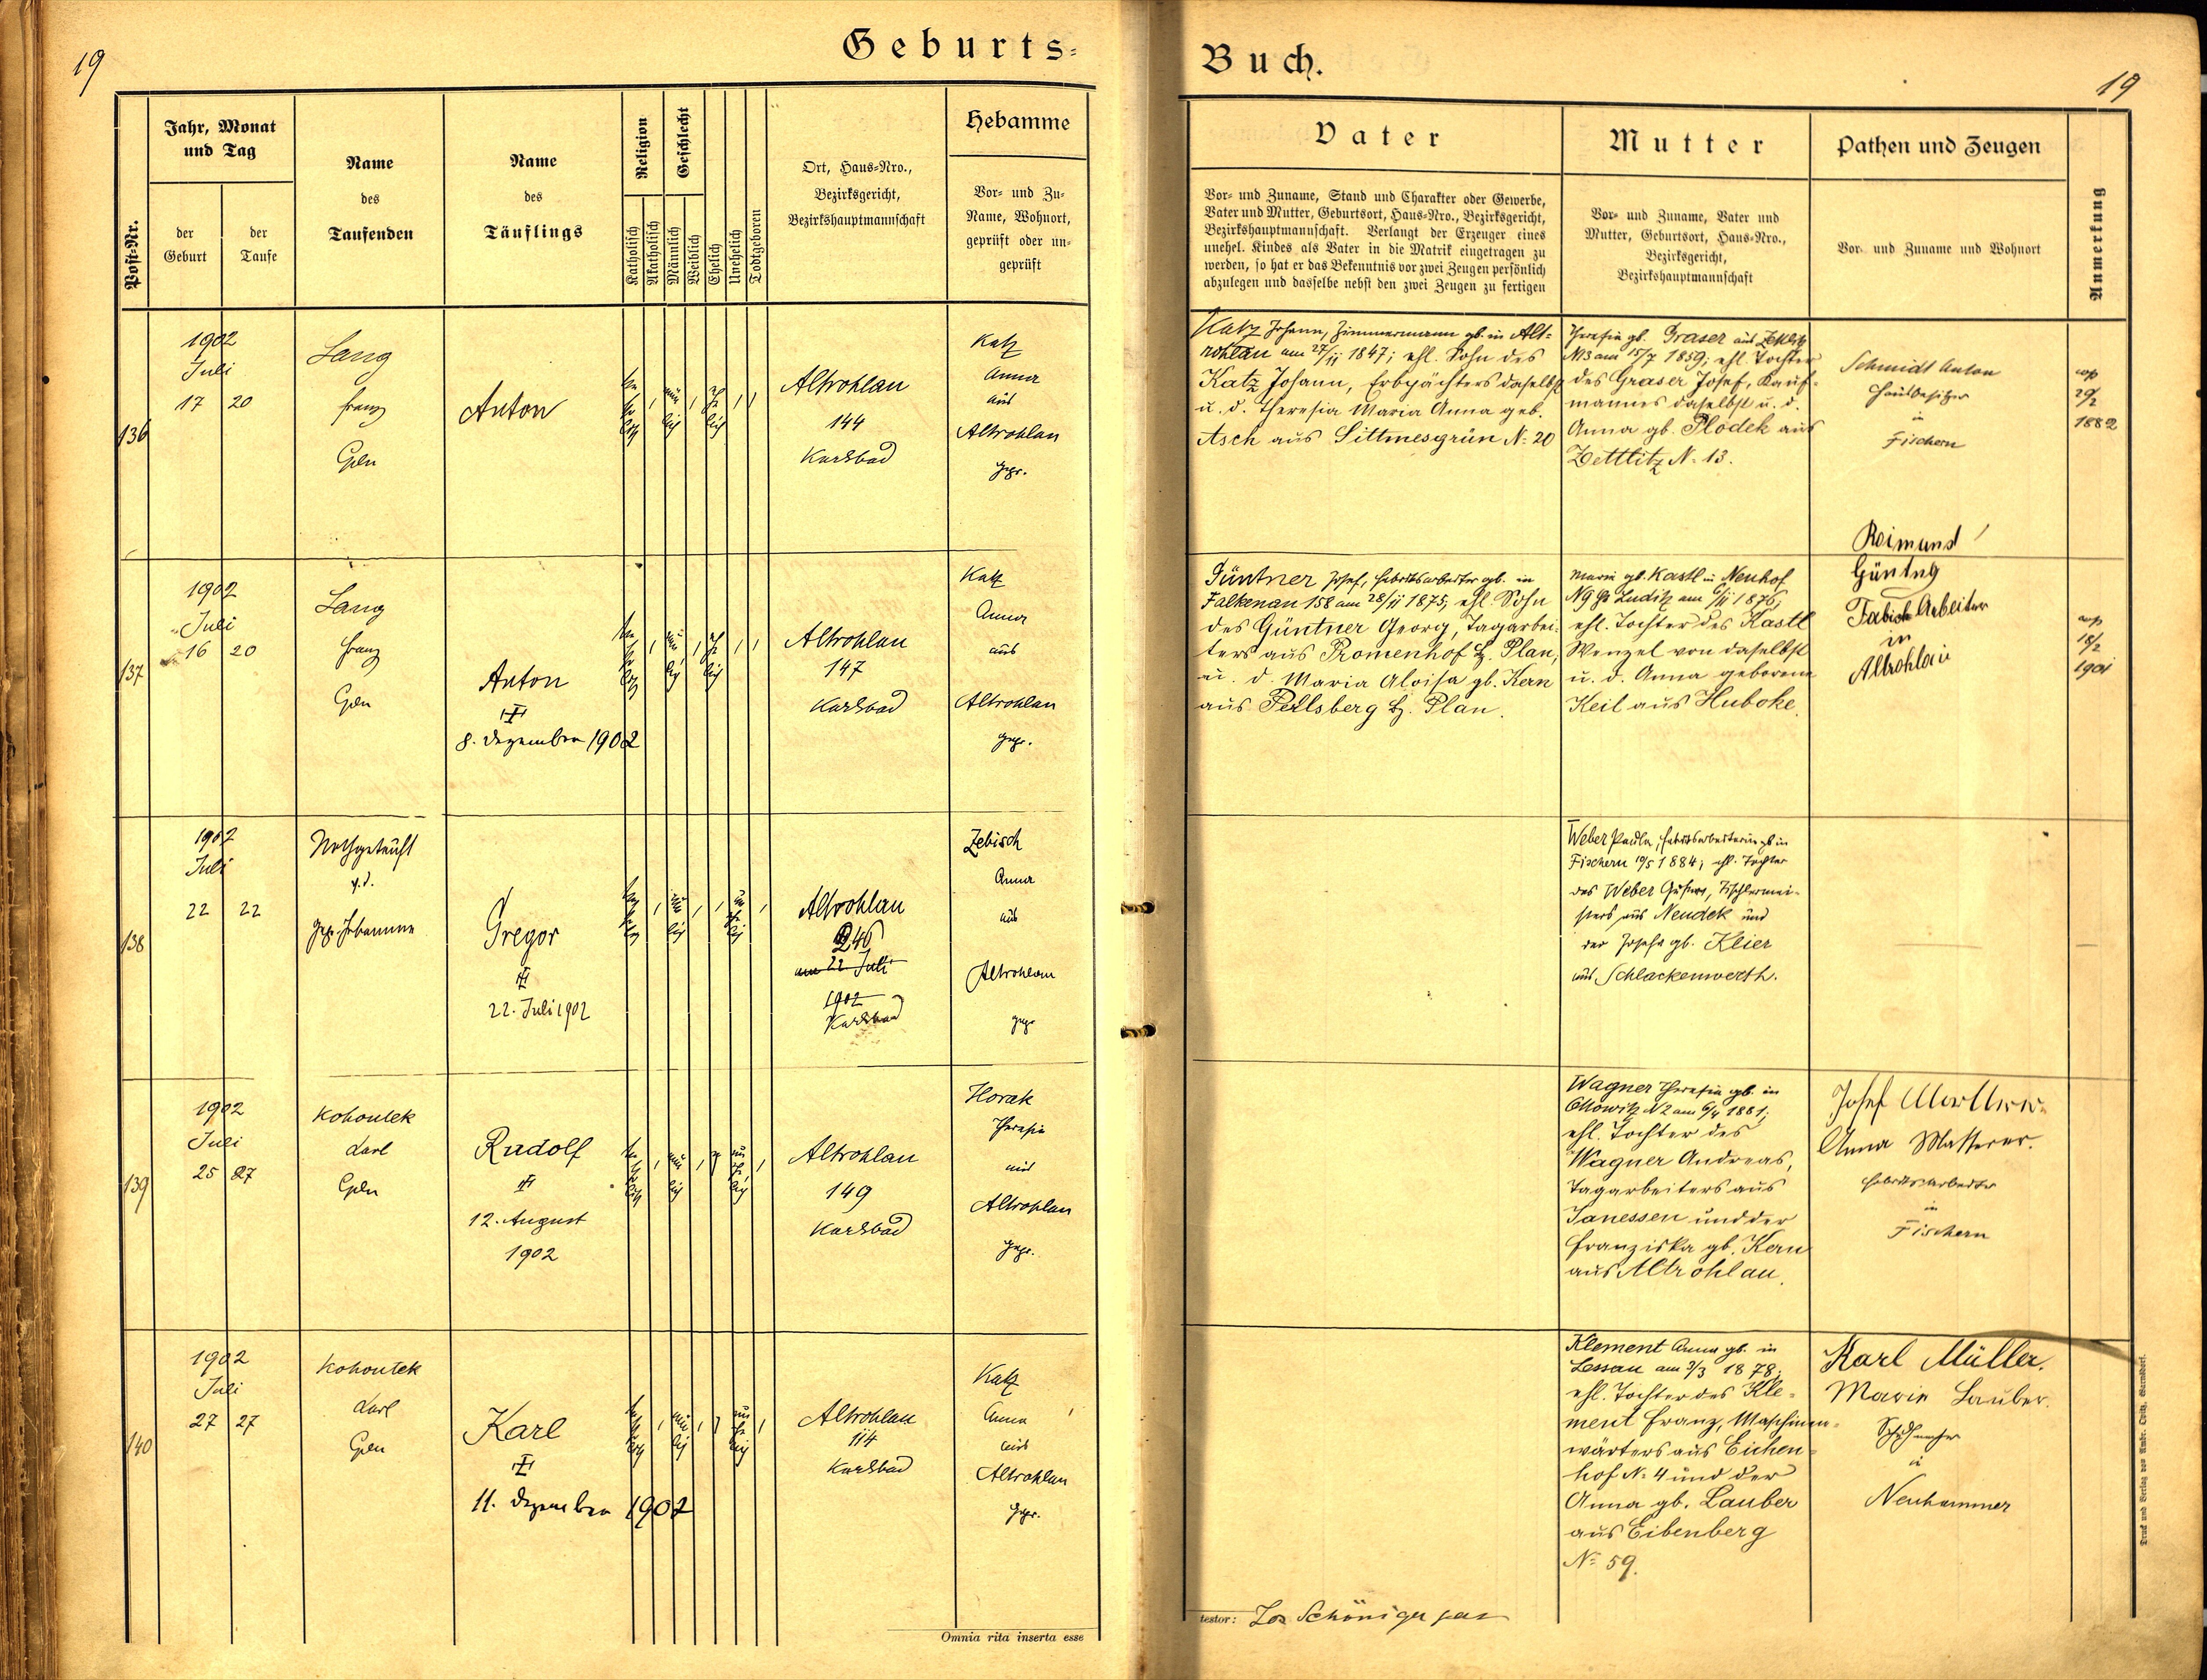 19
Geburts=
Post-Nr.
Jahr, Monat
und Tag
der
Geburt
der
Taufe
Name
des
Taufenden
Name
des
Täuflings
Religion
Katholisch
Akatholisch
Geschlecht
Männlich
Weiblich
Ehelich
Unehelich
Todtgeboren
Ort, Haus-Nro.,
Bezirksgericht,
Bezirkshauptmannschaft
Hebamme
Vor- und Zu-
Name, Wohnort,
geprüft oder un-
geprüft
136
1902
Juli
17 20
Lang
Franz
Anton
Altrohlau
144
Karlsbad
Katz
Anna
aus
Altrohlau
gepr.
137
1902
Juli
16 20
Lang
Franz
Anton
8. Dezember 1902
Altrohlau
147
Karlsbad
Katz
Anna
aus
Altrohlau
gepr.
138
1902
Juli
22 22
Nothgetauft
v. d.
gepr. Hebamme
Gregor
22. Juli 1902
Altrohlau
246
am 22 Juli
1902
Karlsbad
Zebisch
Anna
aus
Altrohlau
gepr
139
1902
Juli
25 27
Kohoutek
Karl
Rudolf
12. August
1902
Altrohlau
149
Karlsbad
Horak
Theresia
aus
Altrohlau
gepr.
140
1902
Juli
27 27
Kohoutek
Karl
Karl
11. Dezember 1902
Altrohlau
114
Karlsbad
Katz
Anna
aus
Altrohlau
gepr.
Omnia rita inserta esse
Buch.
19
Vater
Vor- und Zuname, Stand und Charakter oder Gewerbe,
Vater und Mutter, Geburtsort, Haus-Nro., Bezirksgericht,
Bezirkshauptmannschaft. Verlangt der Erzeuger eines
unehel. Kindes als Vater in die Matrik eingetragen zu
werden, so hat er das Bekenntnis vor zwei Zeugen persönlich
abzulegen und dasselbe nebst den zwei Zeugen zu fertigen
Mutter
Vor- und Zuname, Vater und
Mutter, Geburtsort, Haus-Nro.,
Bezirksgericht,
Bezirkshauptmannschaft
Pathen und Zeugen
Vor- und Zuname und Wohnort
Anmerkung
Katz Johann, Zimmermann gb. in Alt=
rohlau am 27/11 1847; ehl. Sohn des
Katz Johann, Erbpächters daselbst
u. d. Theresia Maria Anna geb.
Asch aus Sittmesgrün N. 20
Theresia gb. Graser aus Zettlitz
N13 am 15/7 1859; ehl. Tochter
des Graser Josef, Kauf=
mannes daselbst u. d.
Anna gb. Plodek aus
Zettlitz N. 13.
Schmidt Anton
Hausbesitzer
in
Fischern
cop
29/2
1882
Güntner Josef, Fabriksarbeiter gb. in
Falkenau 158 am 28/11 1875; ehl. Sohn
des Güntner Georg, Tagarbei=
ters aus Promenhof Bz. Plan,
u. d. Maria Aloisa gb. Kern
aus Perlsberg Bz. Plan.
Maria gb. Kastl in Neuhof
N9 Luditz am 6/11 1876;
ehl. Tochter des Kastl
Wenzel von daselbst
u. d. Anna geborene
Keil aus Huboke.
Reimund
Fabrik Arbeiter
in
Altrohlau
cop
18/2
1901
Weber Paula, Fabriksarbeiterin gb in
Fischern 10/5 1884; ehl. Tochter
des Weber Gustav, Tischlermei-
sters aus Neudek und
der Josefa gb. Klier
aus Schlackenwerth.
Wagner Theresia gb. in
Ottowitz N2 am 6/4 1881;
ehl. Tochter des
Wagner Andreas,
Tagarbeiters aus
Janessen und der
Franziska gb. Kern
aus Altrohlau.
Josef
Anna
Fabriksarbeiter
in
Fischern
Klement Anna gb. in
Lessau am 3/3 1878;
ehl. Tochter des Kle=
ment Franz, Maschinen=
wärters aus Eichen=
hof N. 4 und der
Anna gb. Lauber
aus Eibenberg
N. 59.
Karl Müller.
Marie Lauber.
Schuhmacher
in
Neuhammer
testor: Jos Schöniger
Druck und Verlag von Ambr. Opitz, Warnsdorf.